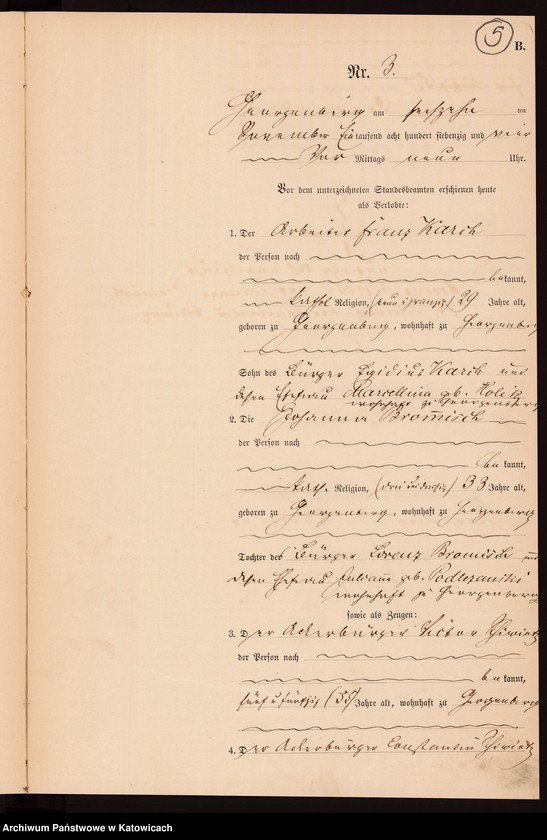 5
B.
Nr. 3.
Georgenberg am sechzehn ten
November Ein tausend acht hundert siebenzig und vier
Vor Mittags neun Uhr.
Vor dem unterzeichneten Standesbeamten erschienen heute
als Verlobte:
1. Der Arbeiter Franz Karch
der Person nach
bekannt,
kathol Religion, (neun u zwanzig) 29 Jahre alt,
geboren zu Georgenberg, wohnhaft zu Georgenberg
Sohn des Bürger Egidius Karch und
dessen Ehefrau Marcellina geb. Kolik
wohnhaft zu Georgenberg
2. Die Johanna Bromisch
der Person nach
bekannt,
kath. Religion, (drei und dreißig) 33 Jahre alt,
geboren zu Georgenberg, wohnhaft zu Georgenberg
Tochter des Bürger Lorenz Bromisch und
dessen Ehefrau geb.
wohnhaft zu Georgenberg
sowie als Zeugen:
3. Der Ackerbürger Victor Schwietz
der Person nach
bekannt,
fünf u fünfzig (55) Jahre alt, wohnhaft zu Georgenberg
4. Der Ackerbürger Constantin Schwietz
Archiwum Państwowe w Katowicach